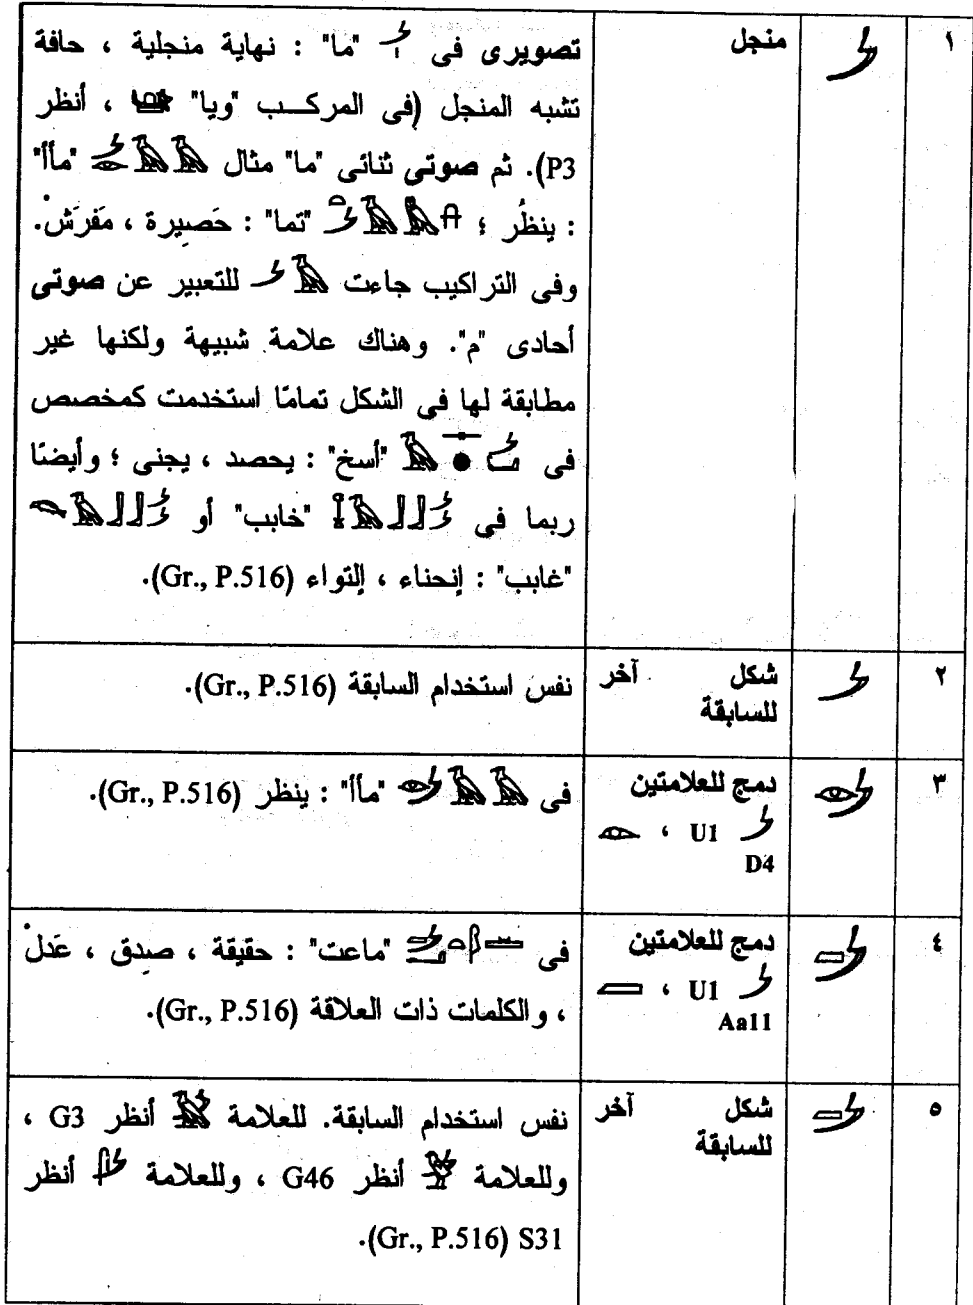 ١
منجل
تصويرى فى "ما" : نهاية منجلية ، حافة
تشبه المنجل (فى المركب "ويا" ، أنظر
P3). ثم صوتى ثنائى "ما" مثال "مأأ"
: ينظُر ؛ "تما" : حَصيرة ، مَفرَش.
وفى التراكيب جاءت للتعبير عن صوتى
أحادى "م". وهناك علامة شبيهة ولكنها غير
مطابقة لها فى الشكل تمامًا استخدمت كمخصص
فى "أسخ" : يحصد ، يجنى ؛ وأيضًا
ربما فى "خابب" أو
"غابب" : إنحناء ، إلتواء (Gr., P.516).
٢
شكل آخر
للسابقة
نفس استخدام السابقة (Gr., P.516).
٣
دمج للعلامتين
U1 ،
D4
فى "مأأ" : ينظر (Gr., P.516).
٤
دمج للعلامتين
U1 ،
Aa11
فى "ماعت" : حقيقة ، صِدق ، عَدلْ
، والكلمات ذات العلاقة (Gr., P.516).
٥
شكل آخر
للسابقة
نفس استخدام السابقة. للعلامة أنظر G3 ،
وللعلامة أنظر G46 ، وللعلامة أنظر
S31 (Gr., P.516).